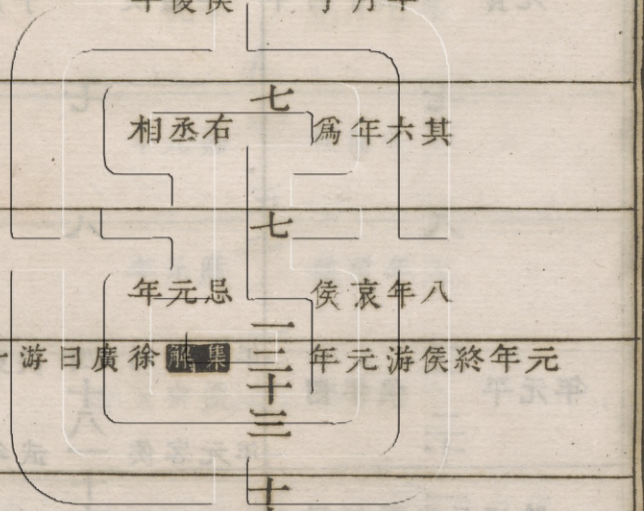 七
其六年爲右丞相
七
八年哀侯忌元年
一
三十三
元年終侯游元年集解徐廣曰游一
十